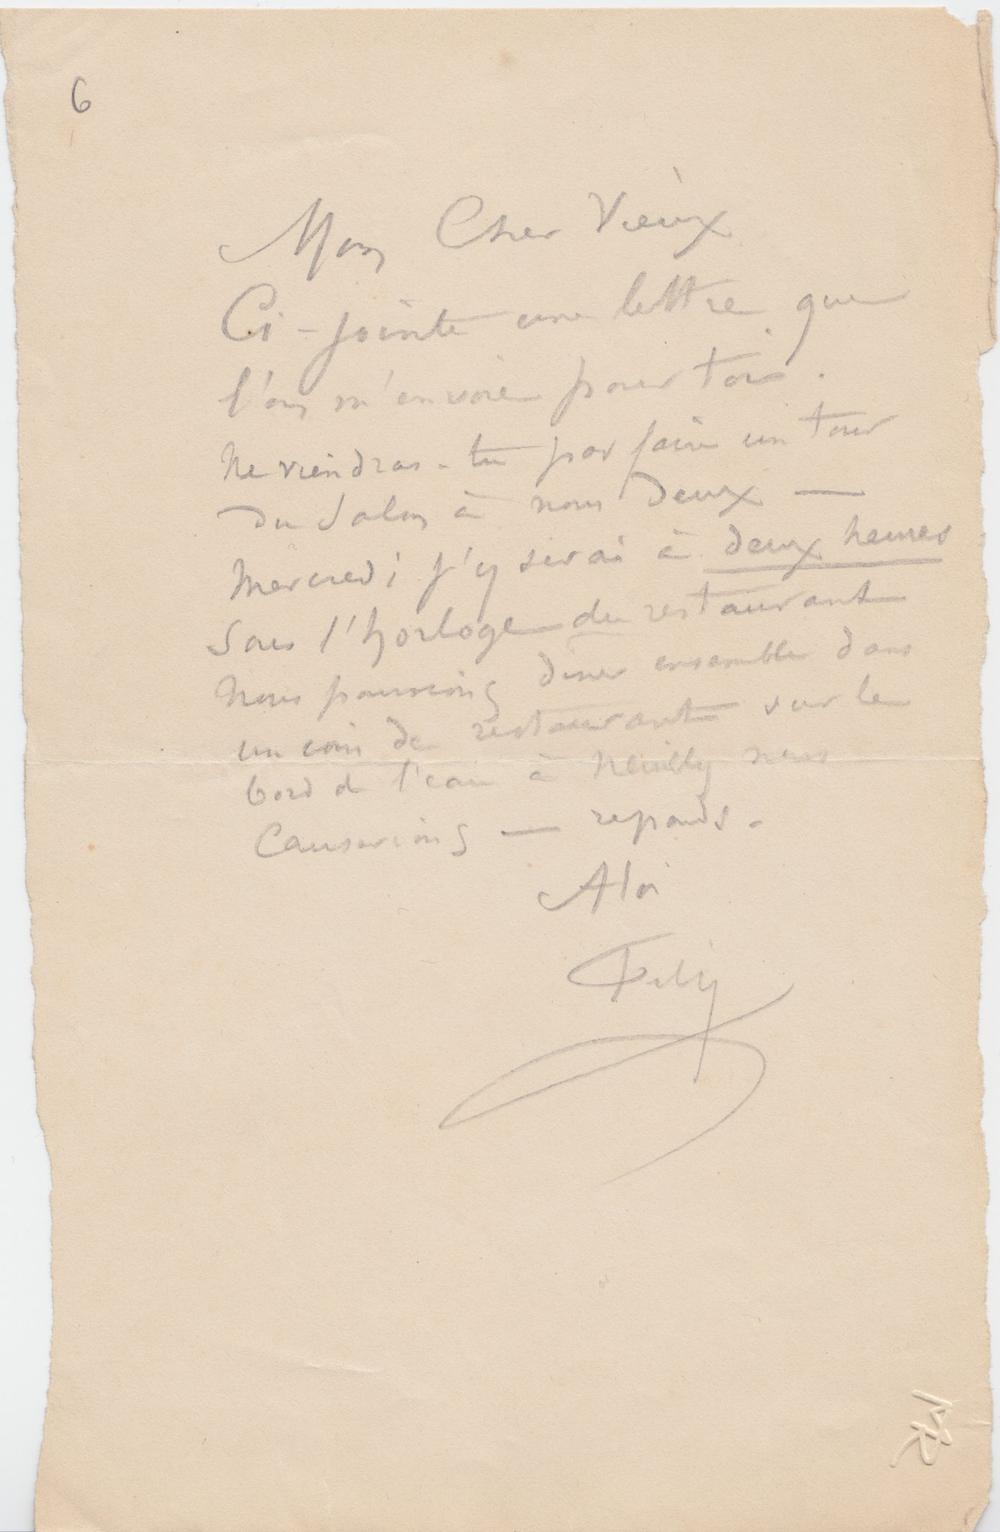 6
Mon Cher Vieux
Ci-jointe une lettre que
l'on m'envoie pour toi.
Ne viendras-tu pas faire un tour
du Salon à nous deux —
Mercredi j'y serai à deux heures
Sous l'horloge du restaurant
Nous pourrions diner ensemble dans
un coin de restaurant sur le
bord de l'eau à Neuilly nous
Causerions — reponds.
A toi